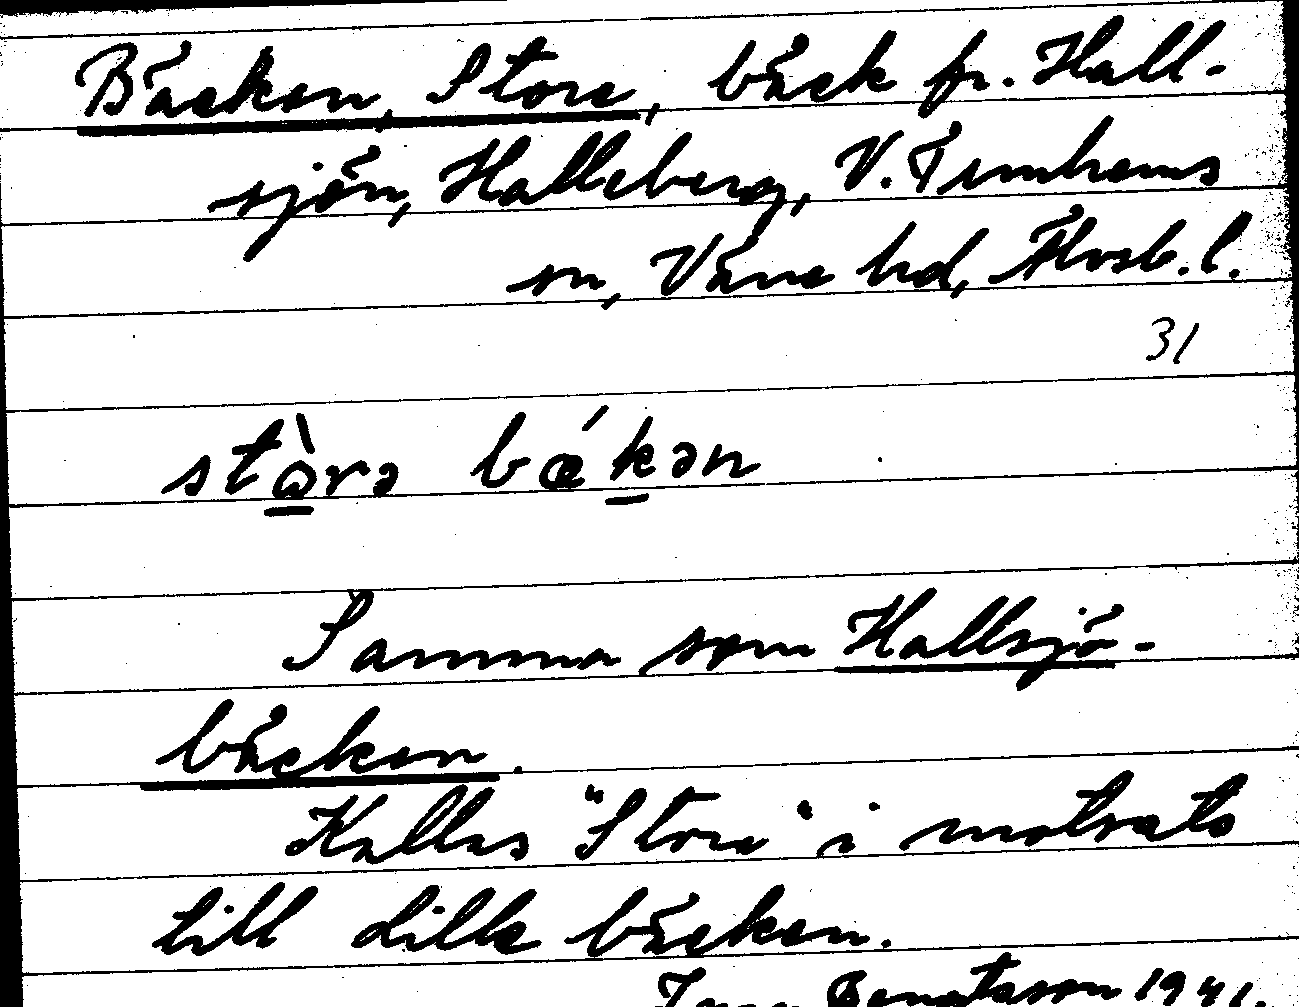 Bäcken, Store, bäck fr. Hall-
sjön, Halleberg, V. Tunhems
sn, Väne hd, Älvsb. l.
31
stòrə bǽkən
Samma som Hallsjö-
bäcken.
Kallas "Store" i motsats
till Lille bäcken.
1941.